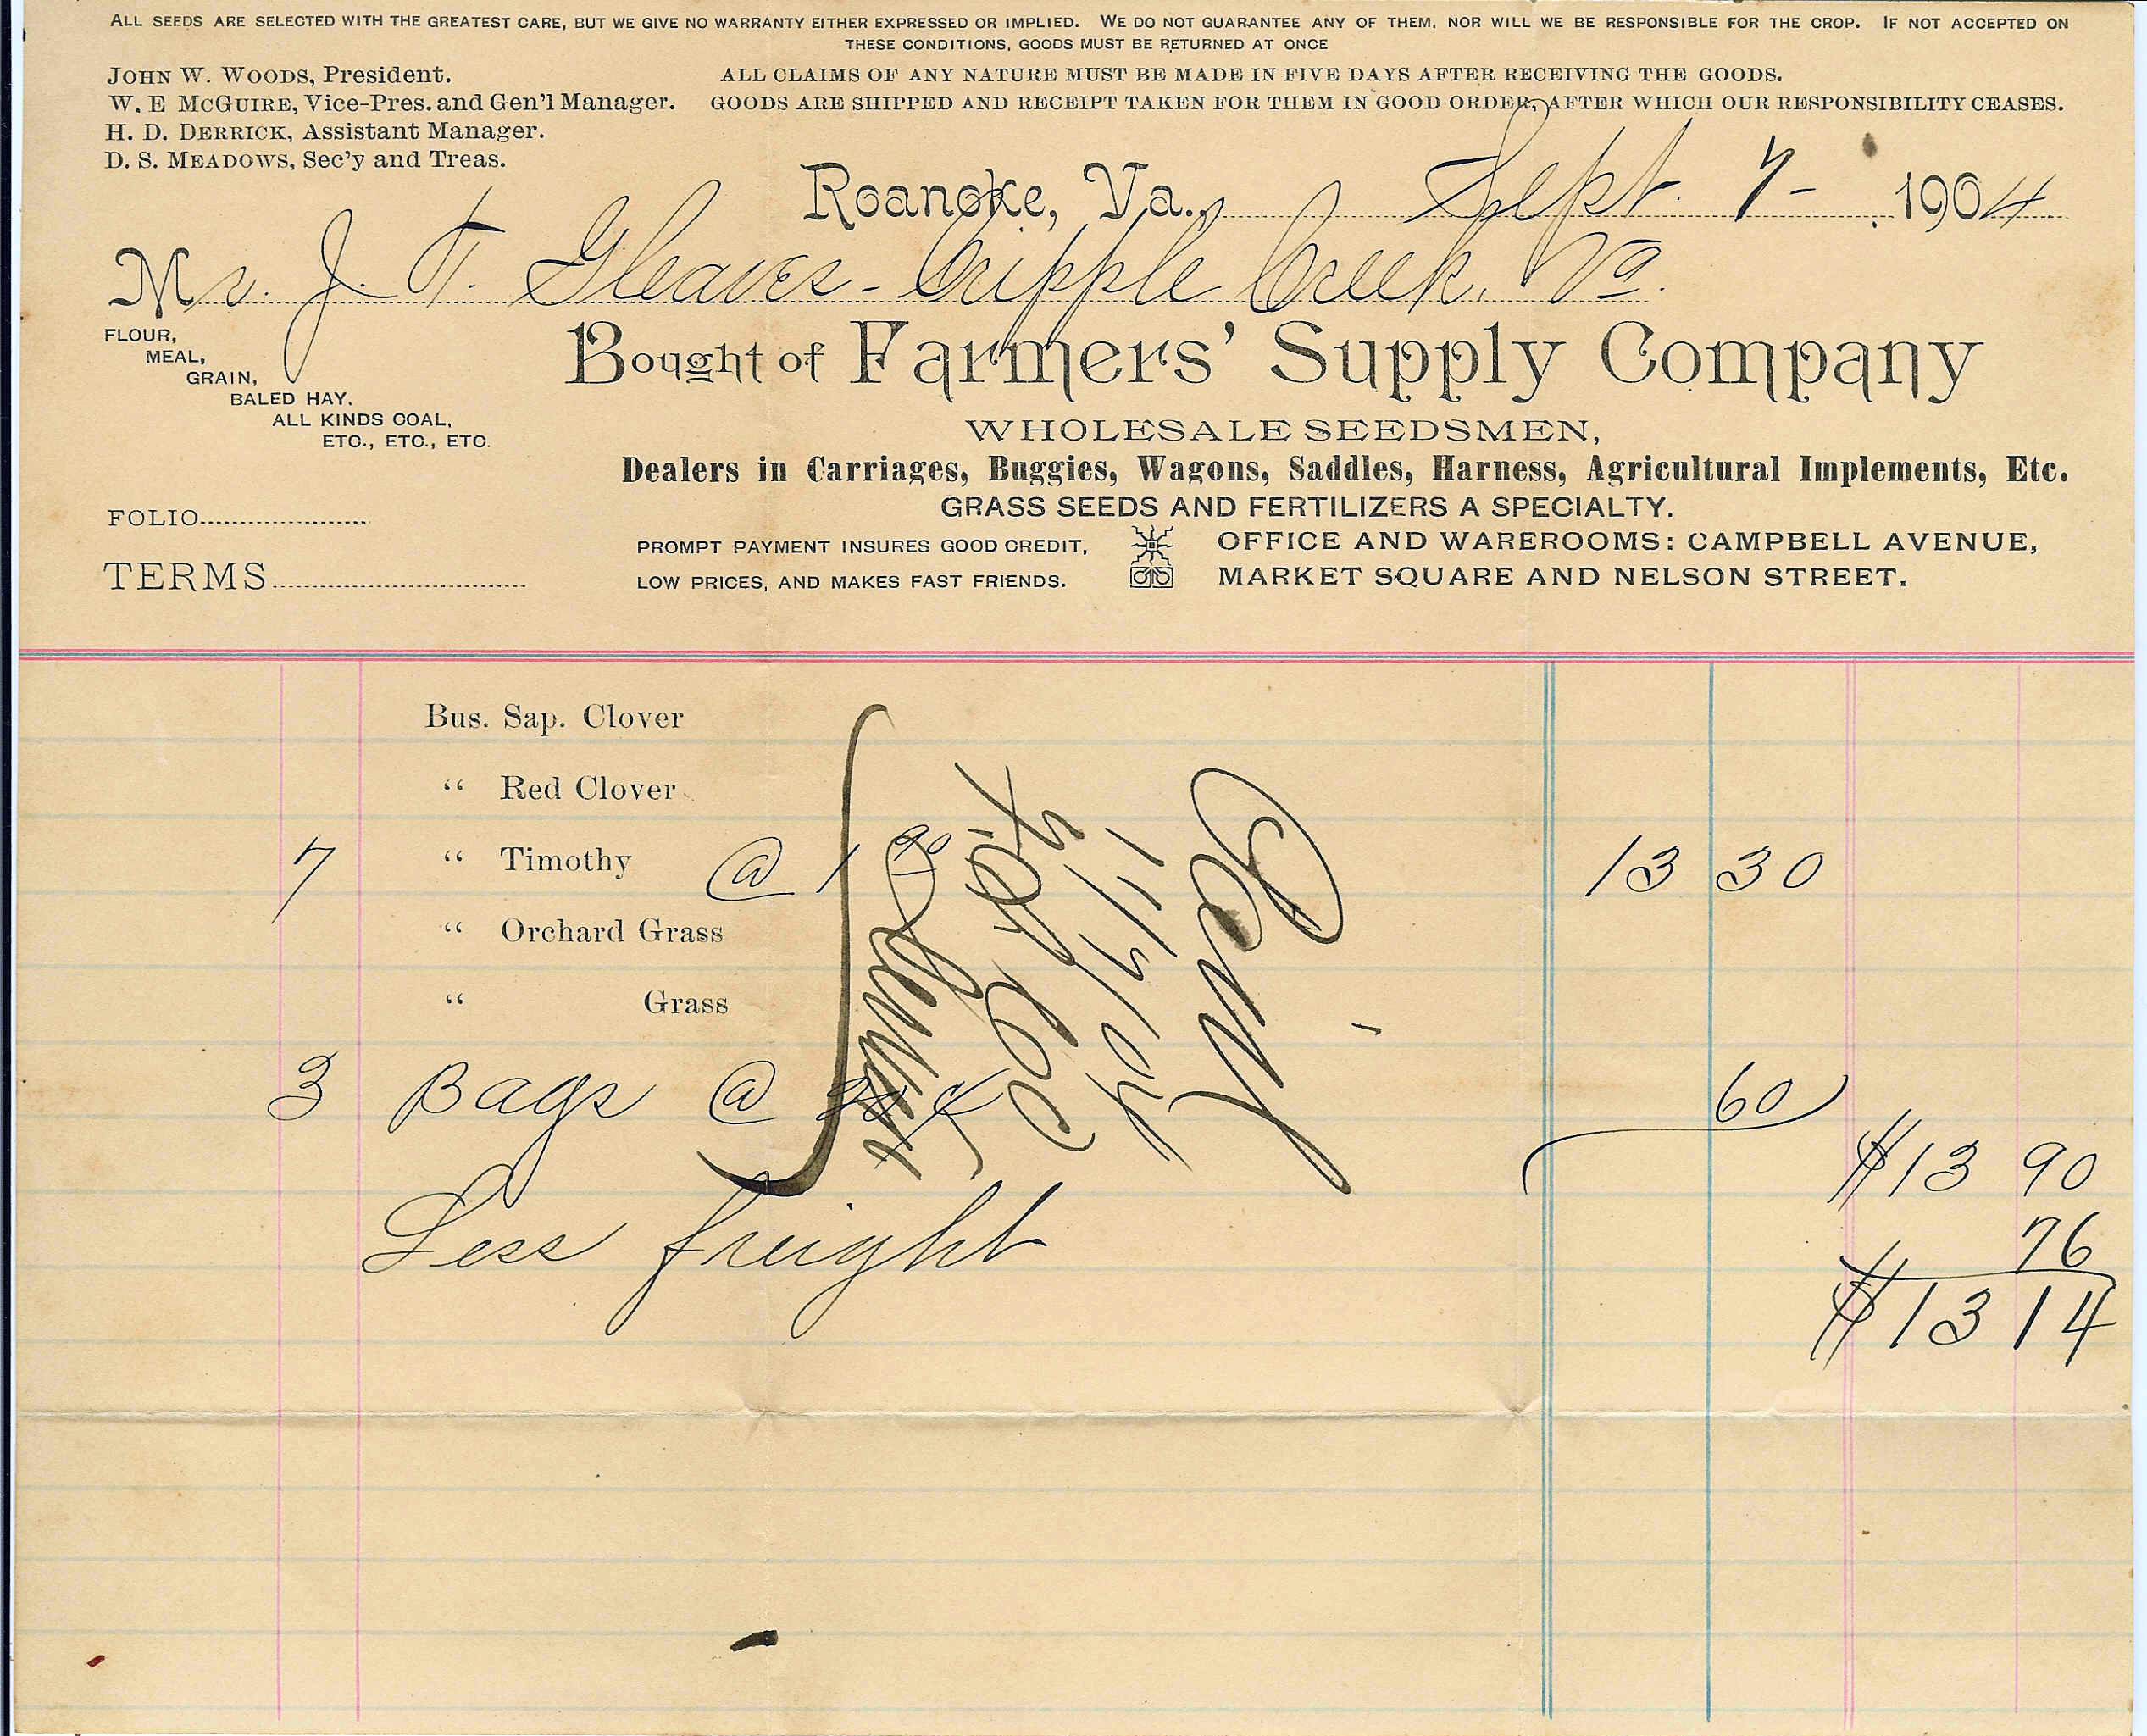 ALL SEEDS ARE SELECTED WITH THE GREATEST CARE, BUT WE GIVE NO WARRANTY EITHER EXPRESSED OR IMPLIED. WE DO NOT GUARANTEE ANY OF THEM, NOR WILL WE BE RESPONSIBLE FOR THE CROP. IF NOT ACCEPTED ON
THESE CONDITIONS, GOODS MUST BE RETURNED AT ONCE
JOHN W. WOODS, President.
W. E McGUIRE, Vice-Pres. and Gen'l Manager.
H. D. DERRICK, Assistant Manager.
D. S. MEADOWS, Sec'y and Treas.
ALL CLAIMS OF ANY NATURE MUST BE MADE IN FIVE DAYS AFTER RECEIVING THE GOODS.
GOODS ARE SHIPPED AND RECEIPT TAKEN FOR THEM IN GOOD ORDER, AFTER WHICH OUR RESPONSIBILITY CEASES.
Roanoke, Va., Sept. 7- 1904
Mr. J. T. Gleaves - Cripple Creek, Va.
FLOUR,
MEAL,
GRAIN,
BALED HAY.
ALL KINDS COAL,
ETC., ETC., ETC.
Bought of Farmers' Supply Company
WHOLESALE SEEDSMEN,
Dealers in Carriages, Buggies, Wagons, Saddles, Harness, Agricultural Implements, Etc.
GRASS SEEDS AND FERTILIZERS A SPECIALTY.
FOLIO
TERMS
PROMPT PAYMENT INSURES GOOD CREDIT,
LOW PRICES, AND MAKES FAST FRIENDS.
OFFICE AND WAREROOMS: CAMPBELL AVENUE,
MARKET SQUARE AND NELSON STREET.
Bus. Sap. Clover
“ Red Clover
7 “ Timothy @ 1 90 13 30
“ Orchard Grass
“ Grass
3 Bags @ 20 ¢ 60
$13 90
Less freight 76
$13 14